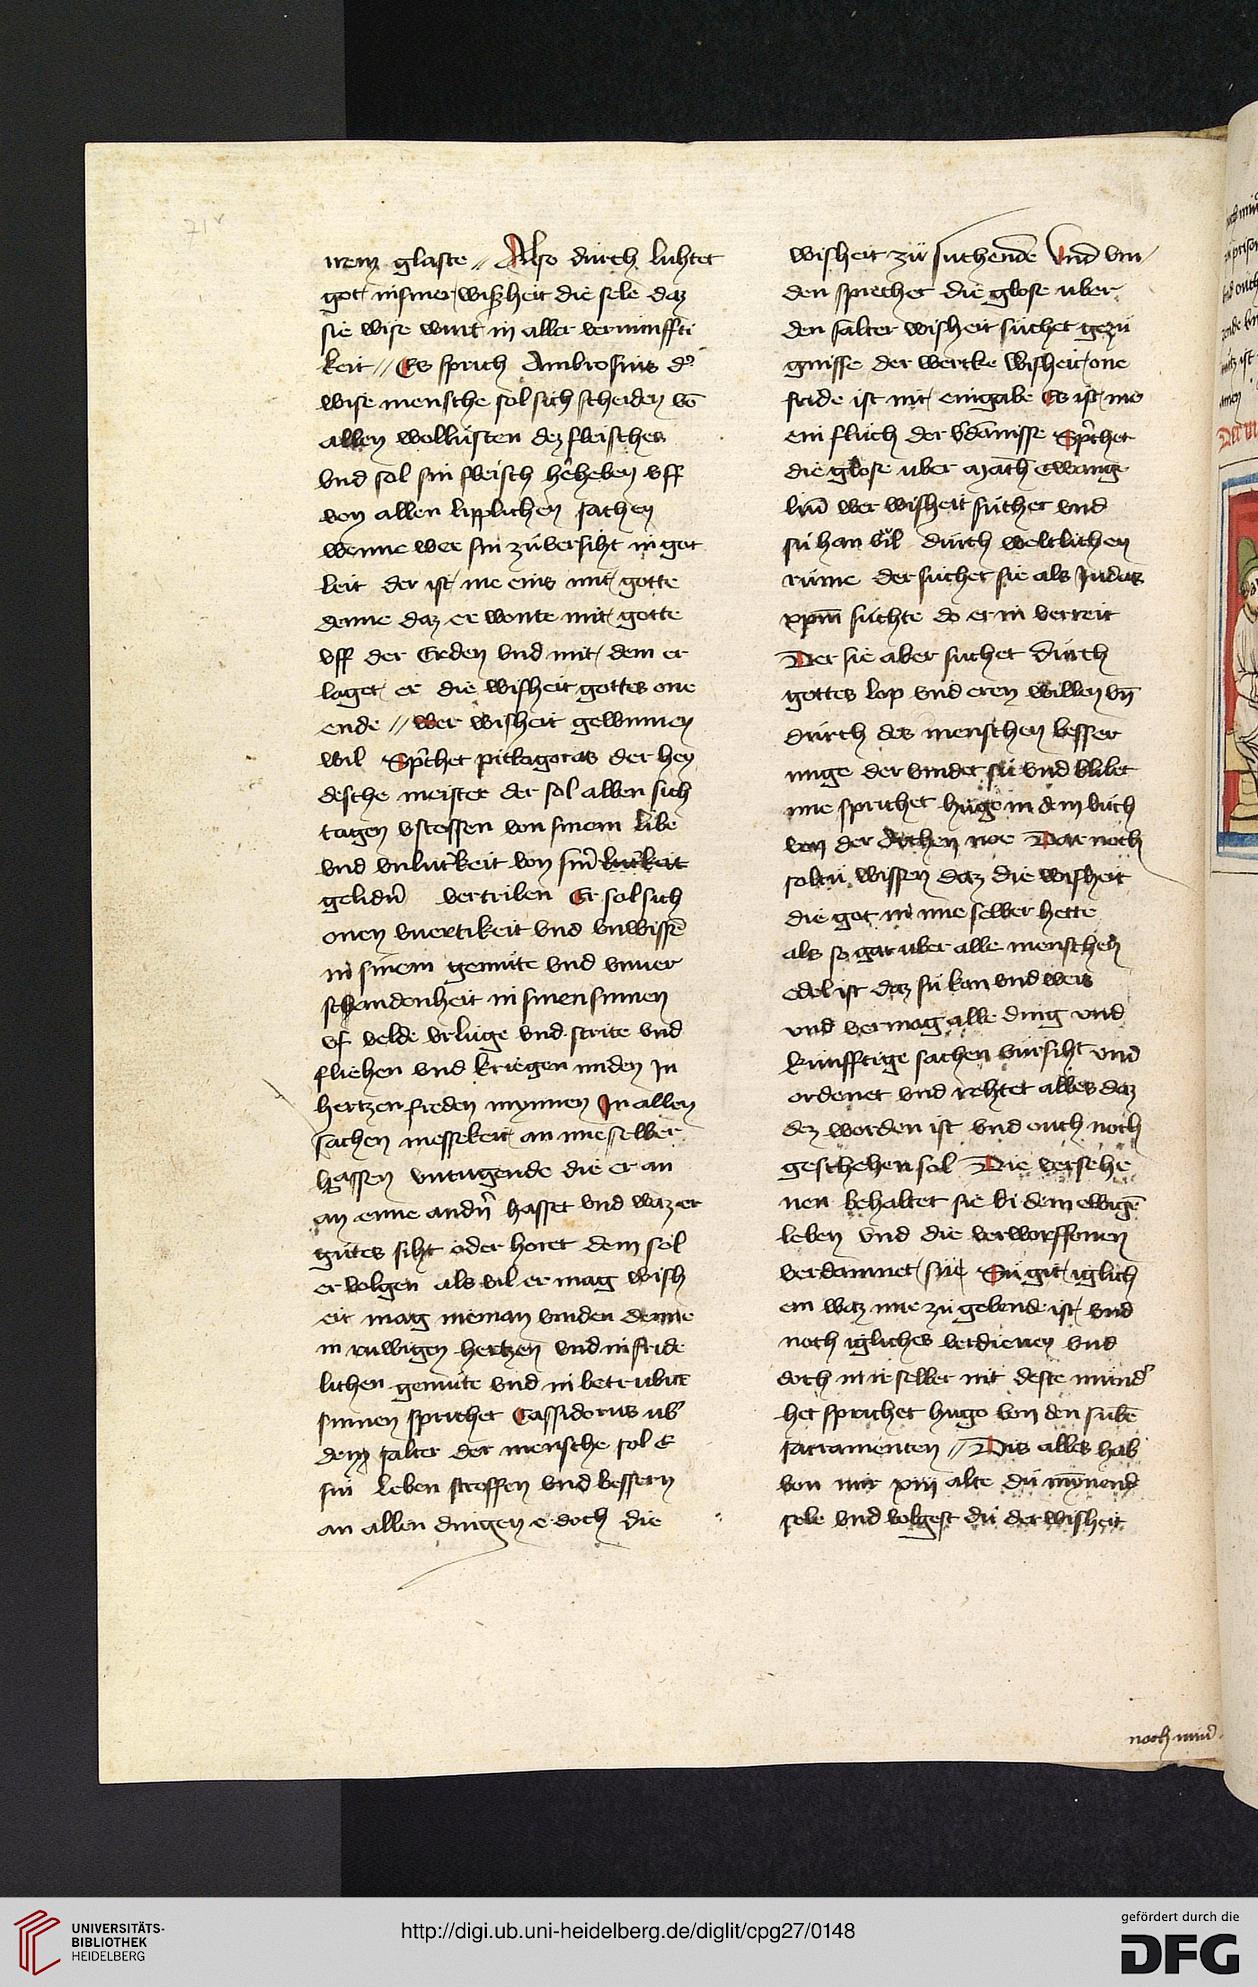 71v
nem glaste // Also durch luhtet
got in siner wißheit die sele daz
sie wise wurt in aller vernunffti
keit // Es sprich Ambrosius d'
wise mensche sol sich scheiden vō
allen wollusten dez fleisches
vnd sol sin fleisch heheben vff
von allen liplichen sachen
wenne wer sin zuversiht in got
leit der ist me eins mit gotte
denne daz er wonte mit gotte
vff der Erden vnd mit dem er
laget er die wisheit gottes one
ende // Wer wisheit gewinnen
wil Sp'chet pitagoras der hey
desche meister der sol allen sich
tagen vstossen von sinem libe
vnd vnlut'keit von sin'
gelid'n vertriben Er sol sich
onen vnertikeit vnd vnwissē
in sinem gemute vnd vnuer
schandenheit in sinen sinnen
vf velde vrluge vnd strite vnd
fliehen vnd kriegen miden In
hertzen frieden mynnen In allen
sachen messekeit an ime selber
hassen vntugende die er an
an eime and'n hasset vnd waz er
gutes siht oder horet dem sol
er volgen als vil er mag wish
eit mag nieman vinden denne
in ruwigen hertzen vnd in fride
lichen gemute vnd in betrubte
sinnen sprichet Cassidorus ub'
dem salter der mensche sol e
sin leben stroffen vnd bessern
an allen dingen e doch die
wisheit zu suchende Vnd vin
den sprechet die glose uber
den salter wisheit suchet gezu
gnisse der wercke wisheit one
fride ist nit ein gabe Es ist me
ein fluch der v'damnisse Sp'chet
die glose uber Math ewange
liū wer wisheit suchet vnd
su han wil durch weltlichen
rume der suchet sie als Judas
xpm suchte do er in verreit
Der sie aber suchet durch
gottes lop vnd eren willen vn
durch des menschen besser
unge der vindet su vnd blibet
ime sprichet huge in dem buch
von der Archen noe Dar noch
soltu wissen daz die wisheit
die got in ime selber hette
als so gar uber alle menschen
edel ist daz su kan vnd weis
vnd vermag alle ding vnd
kunfftige sachen vursiht vnd
ordenet vnd rehtet alles daz
dez worden ist vnd ouch noch
geschehen sol Die versehe
nen behaltet sie bi dem ewigē
leben vnd die verworffenen
verdamnet sue Su git iglich
em waz ime zu gebende ist vnd
noch igliches verdienen vnd
doch in ir selber nit deste mind'
het sprichet hugo von den subē
sacramenten // Dis alles hab
von mir xiij alte du mynend
sele vnd volgest du der wisheit
noch
UNIVERSITÄTS-
BIBLIOTHEK
HEIDELBERG
http://digi.ub.uni-heidelberg.de/diglit/cpg27/0148
gefördert durch die
DFG